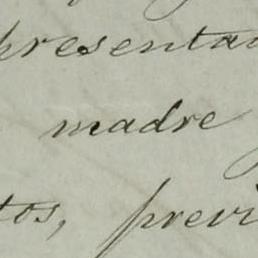 presenta
madre
tos, previ